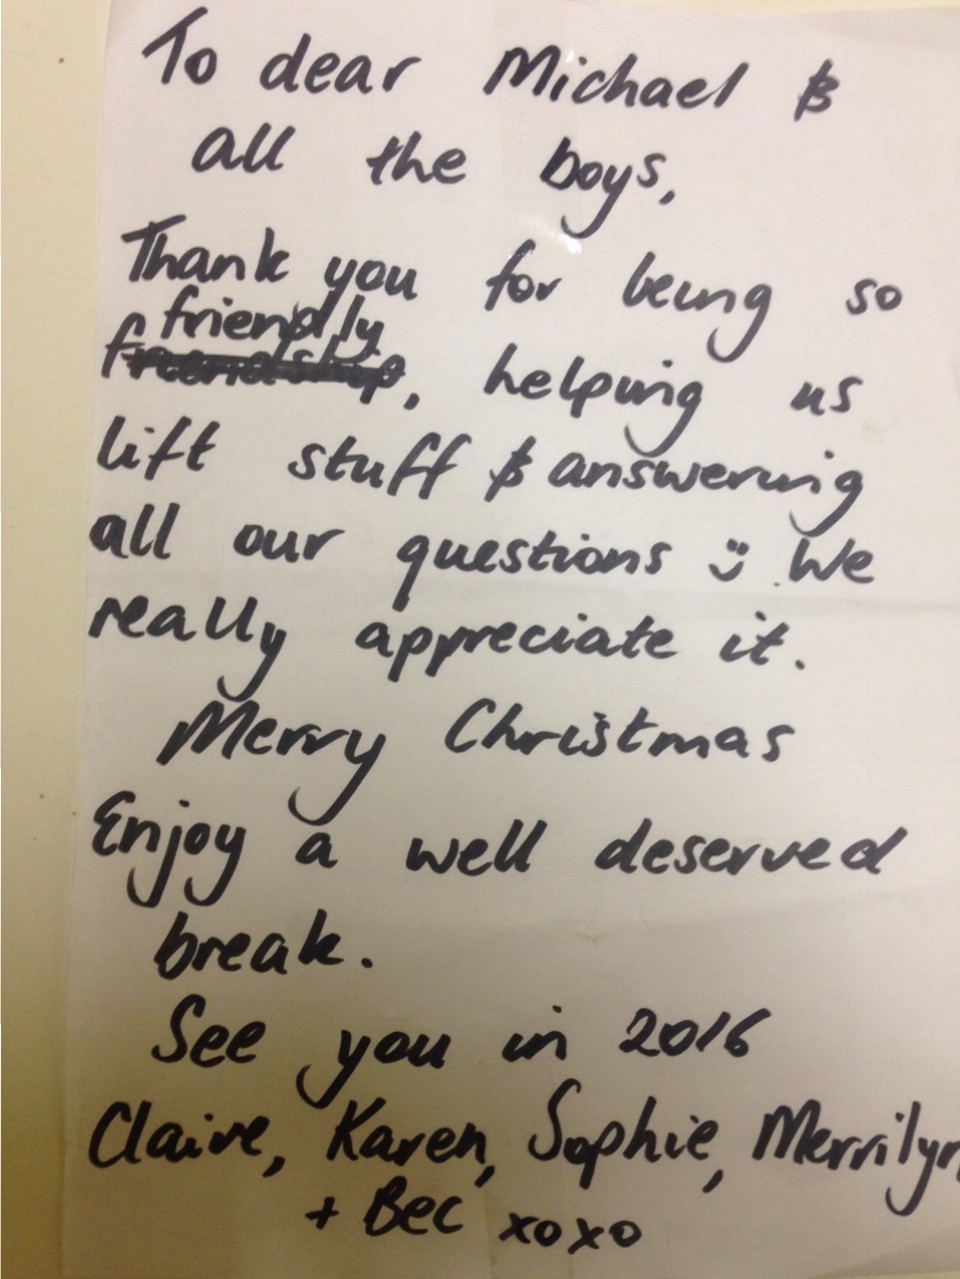 To dear Michael &
all the boys,
Thank you for being so
friendly
friendship, helping us
lift stuff & answering
all our questions :) We
really appreciate it.
Merry Christmas
Enjoy a well deserved
break.
See you in 2016
Claire, Karen, Sophie, Merrilyn
+ Bec xoxo